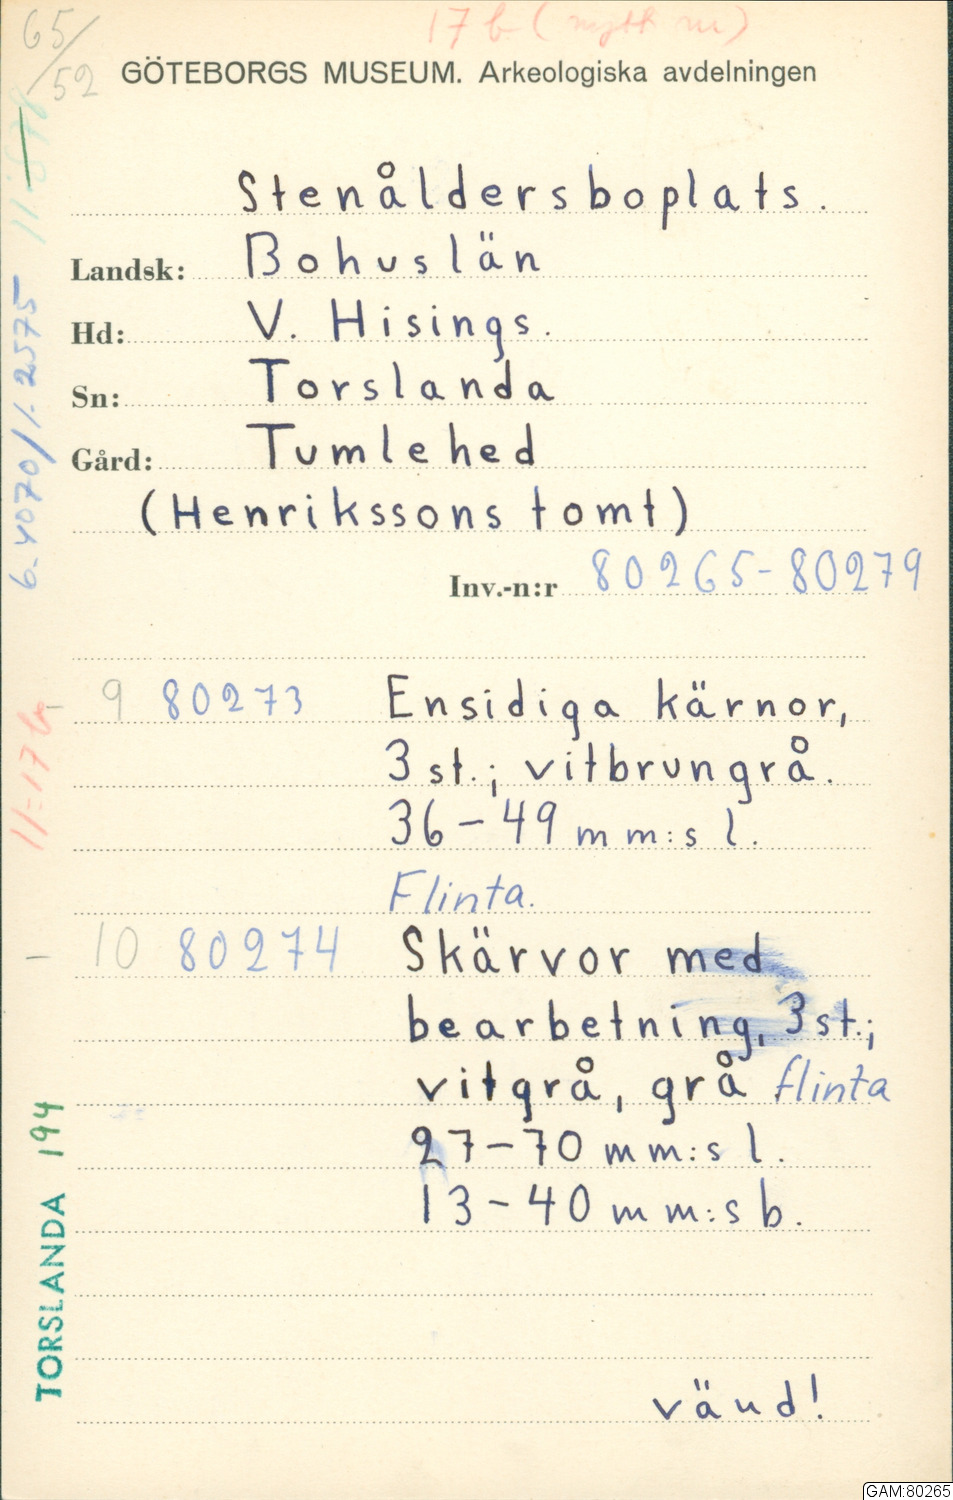 65/52
17 b (nytt nr)
GÖTEBORGS MUSEUM. Arkeologiska avdelningen
Stenåldersboplats.
Landsk: Bohuslän
Hd: V. Hisings.
Sn: Torslanda
Gård: Tumlehed
(Henrikssons tomt)
Inv.-n:r 80265-80279
9 80273 Ensidiga kärnor,
3 st.; vitbrungrå.
36-49 mm:s l.
Flinta.
- 10 80274 Skärvor med
bearbetning, 3 st.;
vitgrå, grå flinta
27-70 mm:s l.
13-40 mm:s b.
vänd!
11=17 b
TORSLANDA 194
GAM:80265